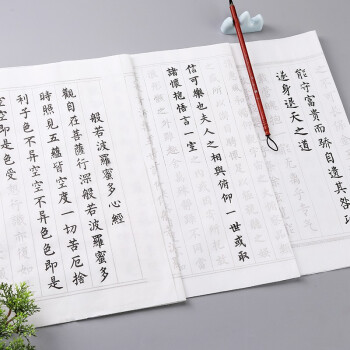 能守富貴而骄自遺其咎
遂身退天之道
信可樂也夫人之相與俯仰一世或取
諸懷抱悟言一室
般若波羅蜜多心經
觀自在菩薩行深般若波羅蜜多
時照見五蘊皆空度一切苦厄捨
利子色不异空空不异色色即是
空空即是色受